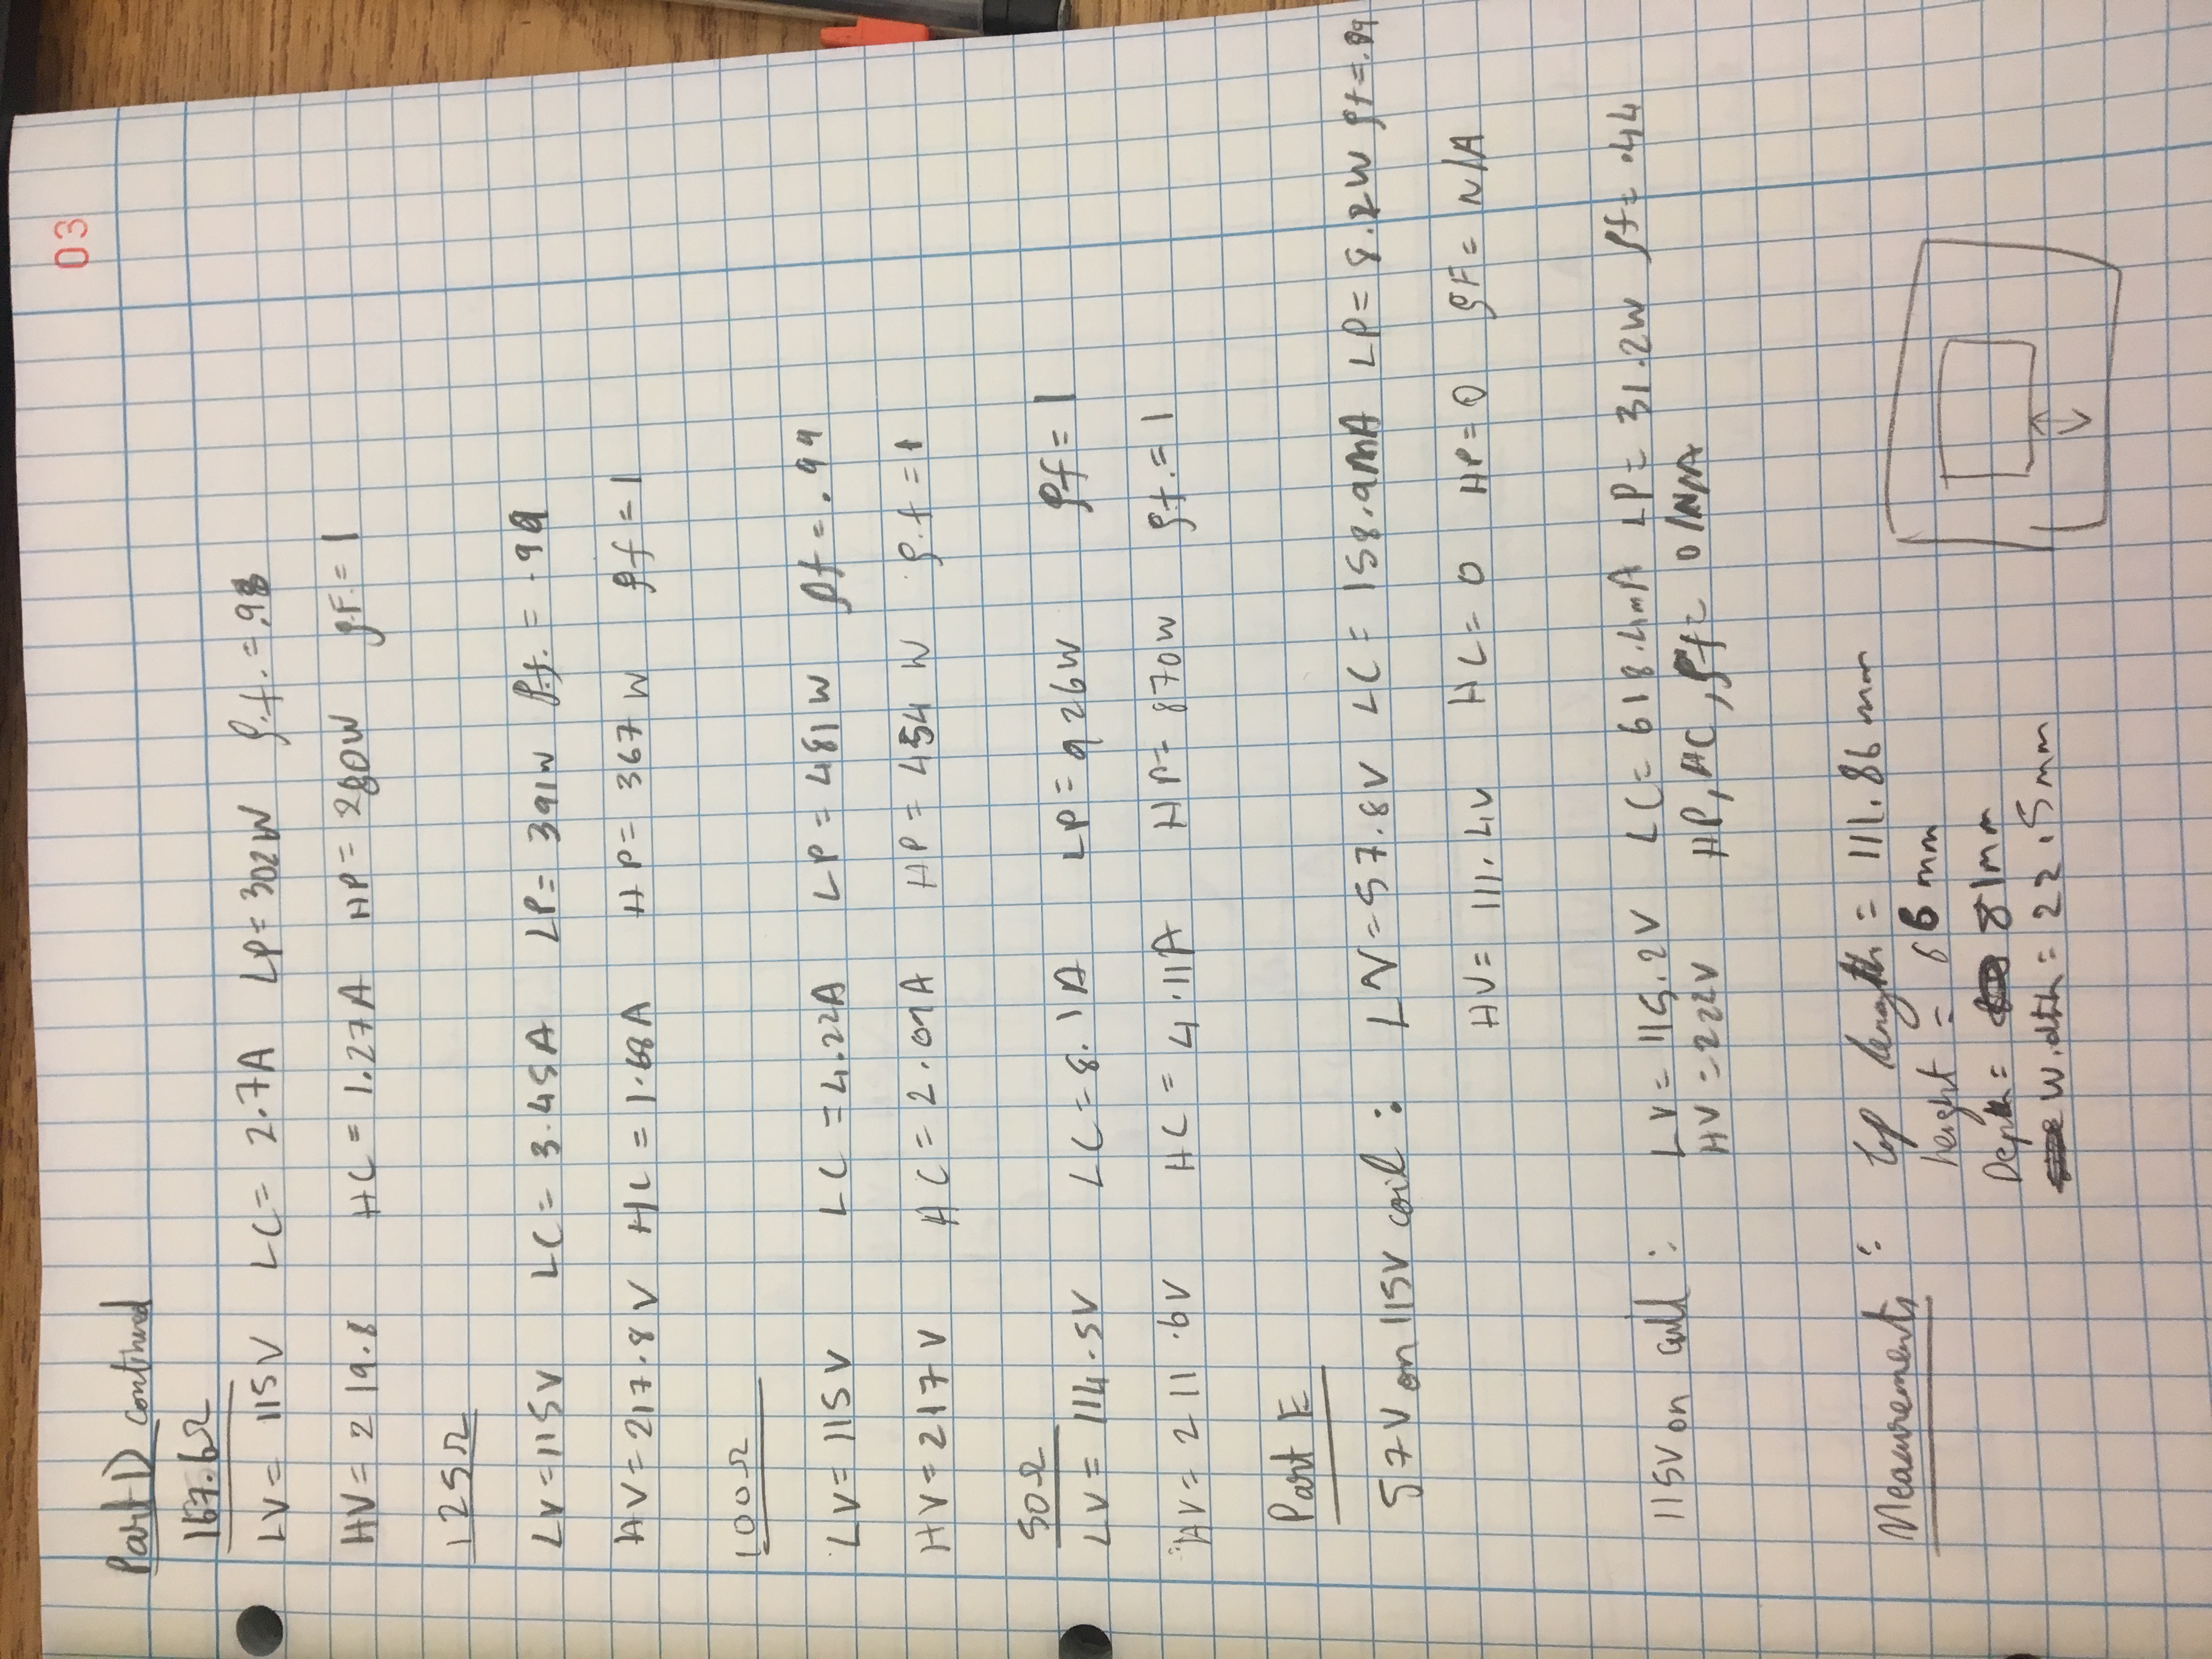 03
Part D continued
167.6Ω
LV = 115V LC = 2.7A LP = 302W p.f. = .98
HV = 219.8 HC = 1.27A HP = 280W p.F. = 1
125Ω
LV = 115V LC = 3.45A LP = 391W p.f. = .99
HV = 217.8V HC = 1.68A HP = 367W pf = 1
100Ω
LV = 115V LC = 4.22A LP = 481W pf = .99
HV = 217V HC = 2.09A HP = 454W p.f = 1
50Ω
LV = 114.5V LC = 8.1A LP = 926W pf = 1
HV = 211.6V HC = 4.11A HP = 870W p.f. = 1
Part E
57V on 115V coil : LV = 57.8V LC = 158.9mA LP = 8.2W pf = .89
HV = 111.4V HC = 0 HP = 0 pF = N/A
115V on coil : LV = 115.2V LC = 618.4mA LP = 31.2W pf = .44
HV = 222V HP, HC, pf = 0/N/A
Measurements : top length = 111.86 mm
height = 66 mm
Depth = 81mm
Width = 22.5mm